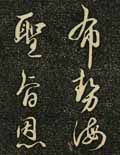 布勢海
聖旨恩